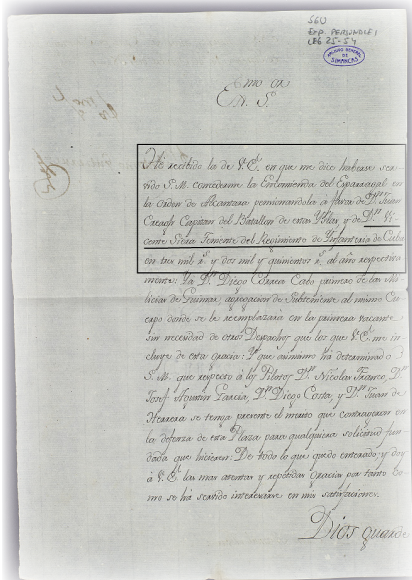 SGU
EXP. PERSONALE
LEG 25-54
ARCHIVO GENERAL
DE
SIMANCAS
Exmo Sr.
He recibido la de V.E. en que me dice haberse ser-
vido S. M. concederme la Encomienda del Esparragal en
la Orden de Alcantara pensionandola á favor de Dn. Juan
Creagh Capitan del Batallon de estas Yslas, y de Dn. Vi-
cente Siera Teniente del Regimiento de Ynfanteria de Cuba
en tres mil rs. y dos mil y quinientos rs. al año respectiva-
mente: Ya Dn. Diego Correa Cabo primero de las Mi-
licias de Guimar, agregacion de Subteniente al mismo Cu-
erpo donde se le reemplazará en la primera vacante
sin necesidad de otros Despachos que los que V.E. me in-
cluye de esta gracia: Y que asimismo ha determinado
S. M. que respecto á los Pilotos Dn. Nicolas Franco, Dn.
Josef Agustin Garcia, Dn. Diego Costa, y Dn. Juan de
Herrera se tenga presente el merito que contrageron en
la defensa de esta Plaza para qualquiera solicitud fun-
dada que hicieren: De todo lo que quedo enterado, y doy
á V.E. las mas atentas y repetidas gracias por tanto co-
mo se há servido interesarse en mis satisfacciones.
Dios guarde